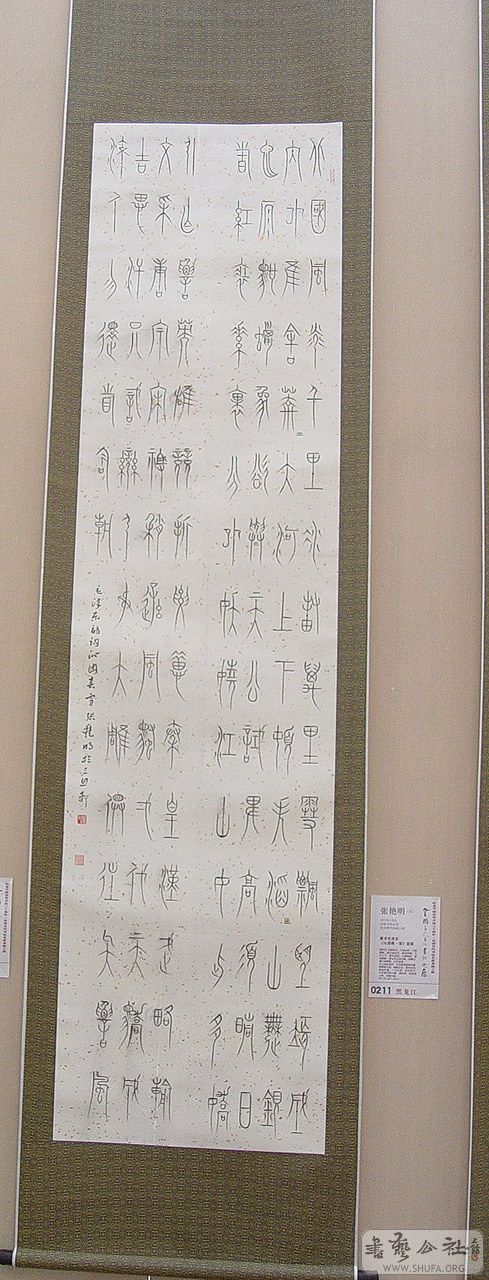 北國風光千里冰封萬里雪飄望長城
內外惟余莽〻大河上下頓失滔〻山舞銀
蛇原馳蠟象欲與天公試比高須晴日
看紅妝素裹分外妖嬈江山如此多嬌
引亡數英雄競折腰惜秦皇漢武略輸
文采唐宗宋祖稍遜風騷一代天驕成
吉思汗只識彎弓射大雕俱往矣數風
流人物還看今朝
毛澤東 詞沁園春雪張艷明於
张艳明（女）
0211 黑龙江
書藝公社
WWW.SHUFA.ORG